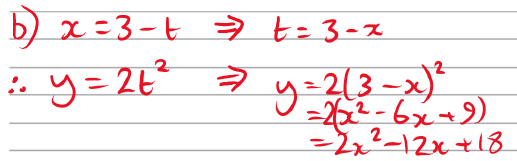 b) x = 3 - t ⇒ t = 3 - x
∴ y = 2t² ⇒ y = 2(3 - x)²
= 2(x² - 6x + 9)
= 2x² - 12x + 18